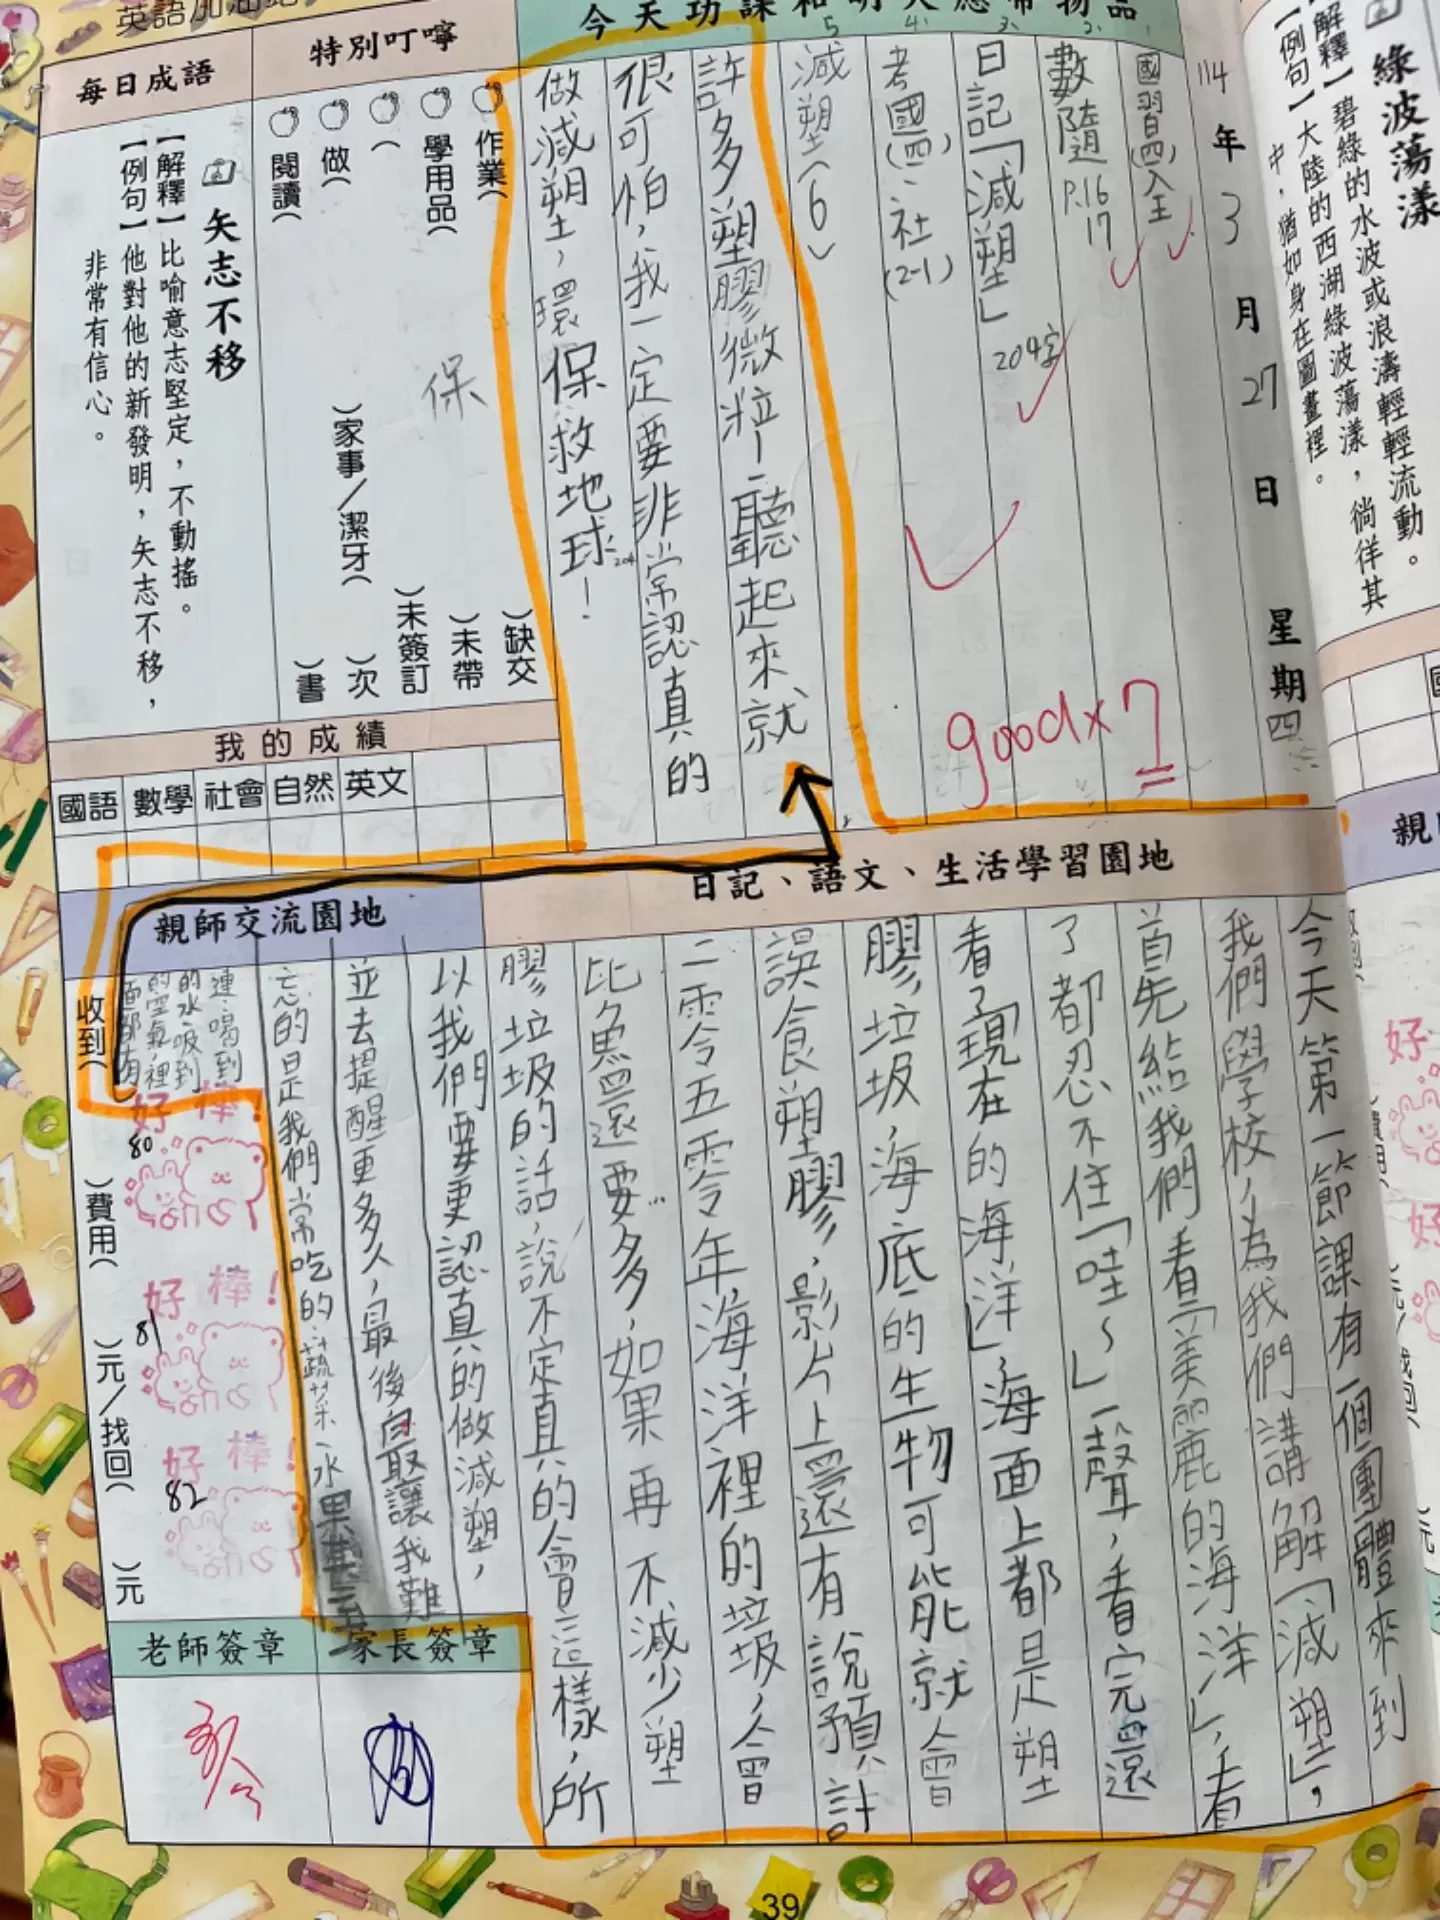 綠波蕩漾
【解釋】碧綠的水波或浪濤輕輕流動。
【例句】大陸的西湖綠波蕩漾，徜徉其
中，猶如身在圖畫裡。
114年3月27日星期四
今天功課和明天應帶物品
1.
國習(四)入王
2.
數隨P.16
17
3.
日記「減塑」
204字
4.
考國(四)、社(2-1)
5.
減塑(6)
good×7
許多塑膠微粒！聽起來就
很可怕，我一定要非常認真的
做減塑，環保救地球！
204
特別叮嚀
作業(　)缺交
學用品(　)未帶
(　)未簽訂
做(　)次
)家事/潔牙(
閱讀(　)書
保
每日成語
矢志不移
【解釋】比喻意志堅定，不動搖。
【例句】他對他的新發明，矢志不移，
非常有信心。
我的成績
國語
數學
社會
自然
英文
日記、語文、生活學習園地
今天第一節課有一個團體來到
我們學校，為我們講解「減塑」，
首先給我們看「美麗的海洋」，看
了都忍不住「哇～」一聲，看完還
看了「現在的海洋」，海面上都是塑
膠垃圾，海底的生物可能就會
誤食塑膠，影片上還有說預計
二零五零年海洋裡的垃圾，會
比魚還要多，如果再不減少塑
膠垃圾的話，說不定真的會這樣，所
以我們要更認真的做減塑，
並去提醒更多人，最後自最讓我難
忘的是我們常吃的蔬菜、水果甚至
親師交流園地
連喝到
的水、吸到
的空氣裡
面都有
收到(　)費用(　)元/找回(　)元
好棒!
80
好棒!
81
好棒!
82
老師簽章
家長簽章
39